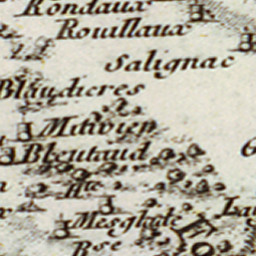 Rondaux
Rouillaux
Salignac
Blaudieres
Mitivier
Bleutaud
Hte
Mesghate
Bse